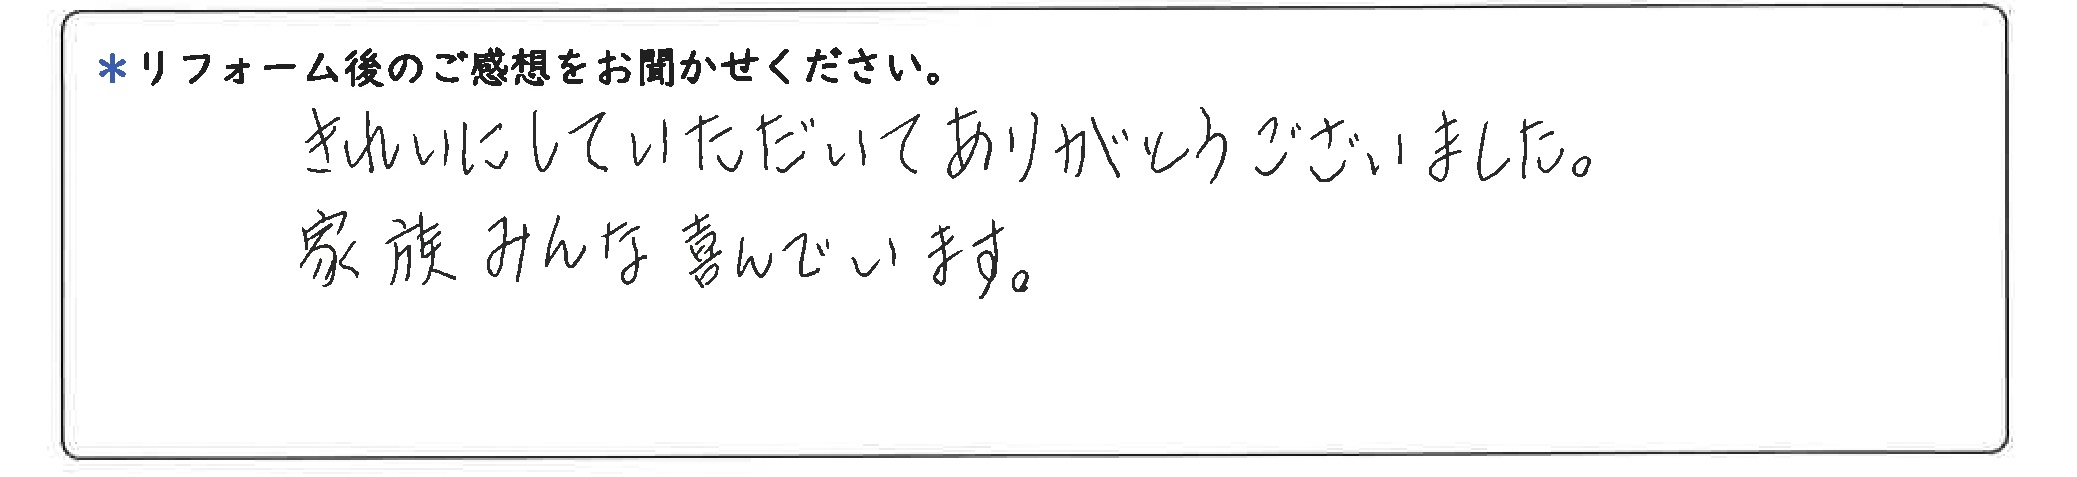 ＊リフォーム後のご感想をお聞かせください。
きれいにしていただいてありがとうございました。
家族みんな喜んでいます。